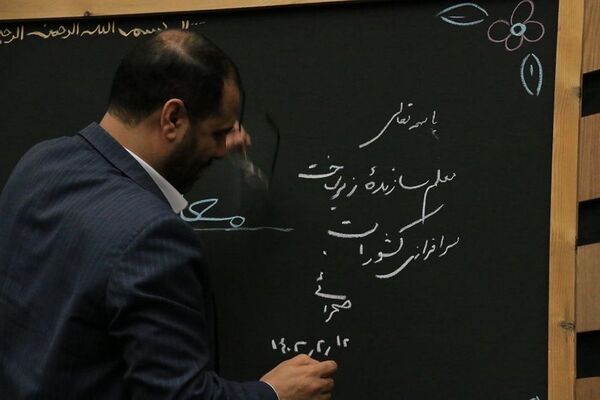 بسم الله الرحمن الرحیم
باسمه تعالی
معلم سازندهٔ زیرساخت
سرافرازی کشور است.
صحرائی
۱۴۰۳٫۲٫۱۲